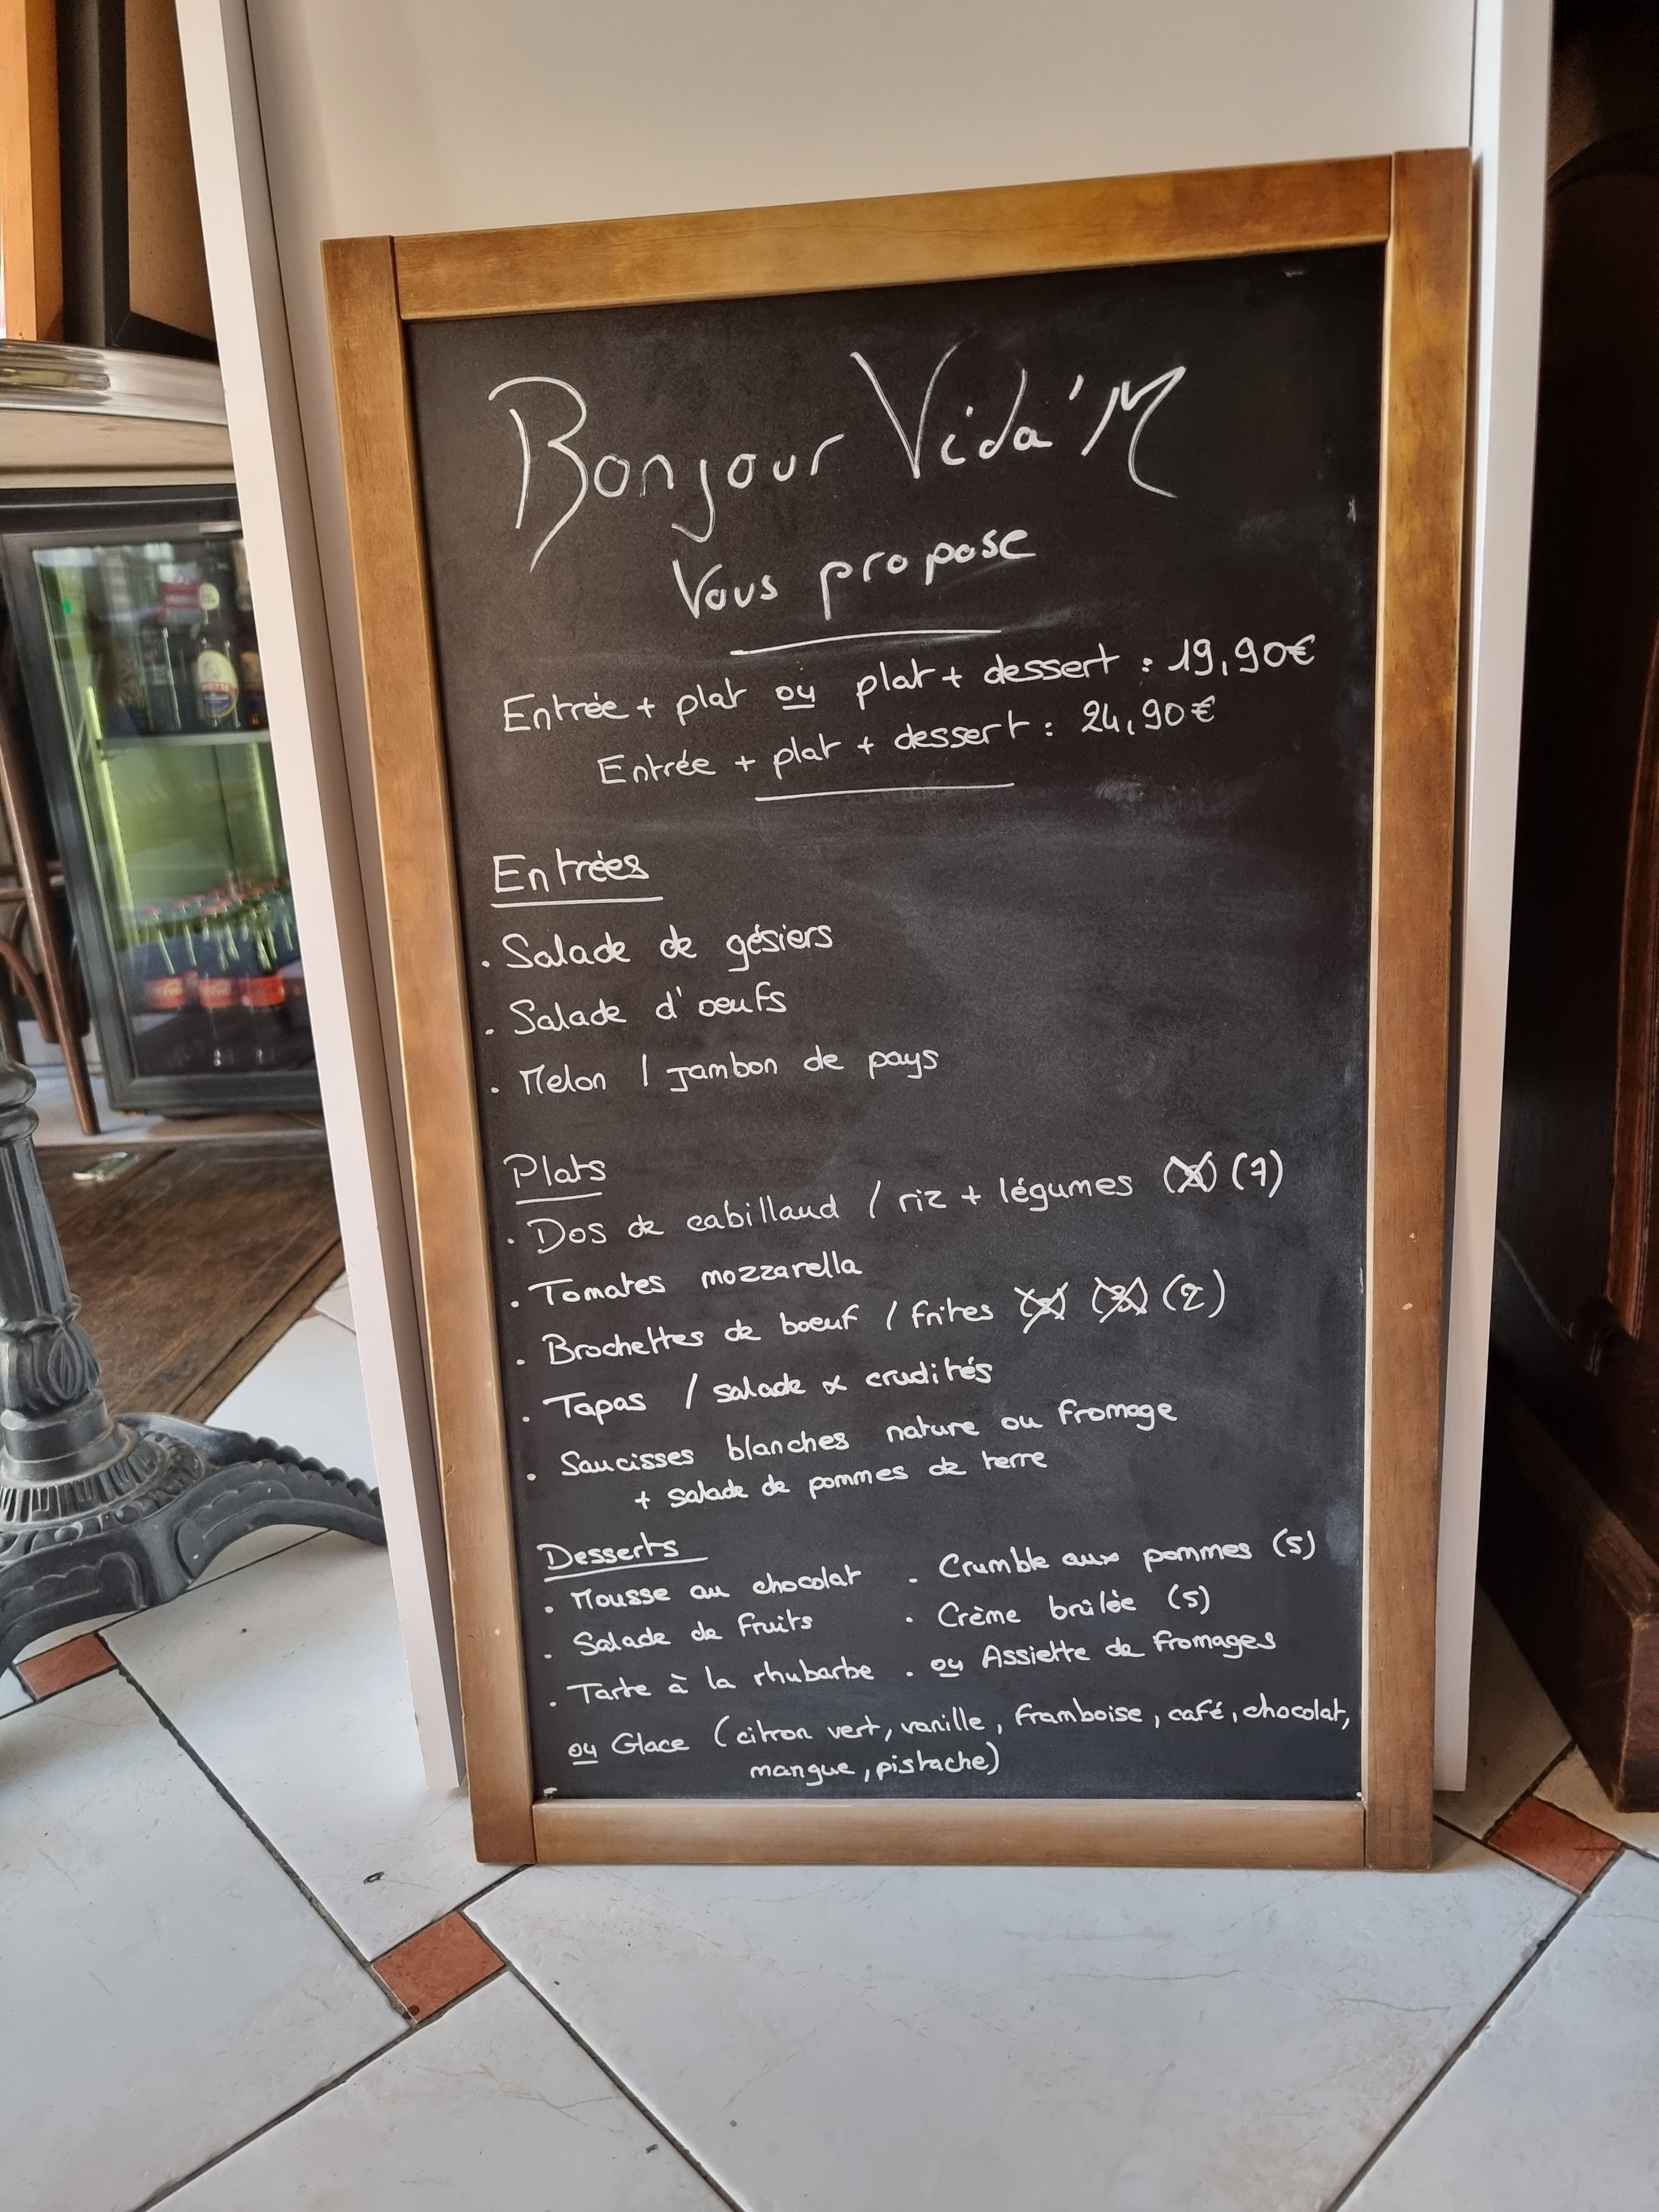 Bonjour Vida'M
Vous propose
Entrée + plat ou plat + dessert : 19,90€
Entrée + plat + dessert : 24,90€
Entrées
. Salade de gésiers
. Salade d'oeufs
. Melon / Jambon de pays
Plats
. Dos de cabillaud / riz + légumes (7)
. Tomates mozzarella
. Brochettes de boeuf / frites (3) (2)
. Tapas / salade & crudités
. Saucisses blanches nature ou fromage
+ salade de pommes de terre
Desserts
. Mousse au chocolat . Crumble aux pommes (5)
. Salade de fruits . Crème brûlée (5)
. Tarte à la rhubarbe . ou Assiette de fromages
ou Glace (citron vert, vanille, framboise, café, chocolat,
mangue, pistache)